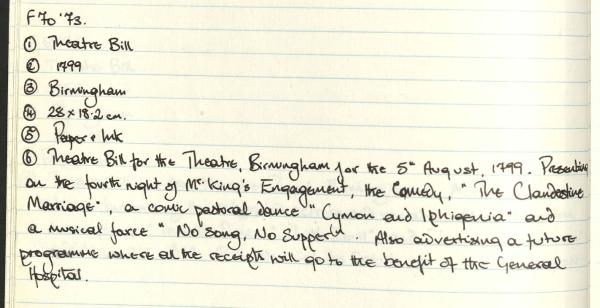 F70'73.
① Theatre Bill
② 1799
③ Birmingham
④ 28 x 18.2 cm.
⑤ Paper + Ink
⑥ Theatre Bill for the Theatre, Birmingham for the 5th August, 1799. Presenting
on the fourth night of Mr. King's Engagement, the Comedy, "The Clandestine
Marriage", a comic pastoral dance "Cymon and Iphigenia" and
a musical farce "No Song, No Supper". Also advertising a future
programme where all the receipts will go to the benefit of the General
Hospital.